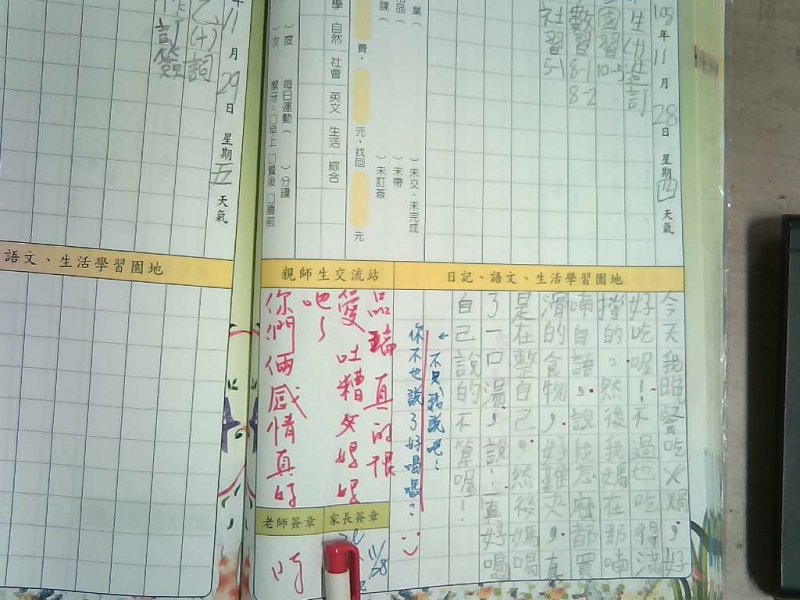 109年11月28日 星期四 天氣
國習10-5
數習8-1
8-2
社習5-1
業
用品
課
未交、未完成
未帶
未訂簽
費,
元,找回
元
學 自然 社會 英文 生活 綜合
度
次
每日運動( )分鐘
潔牙:□早上 □餐後 □睡前
日記、語文、生活學習園地
今天我晚餐吃火鍋,好
好吃喔!不過也吃得滿
撐的。然後我媽在那喃
喃自語,說我怎麼都買
滑的食物,好難夾,真
是在整自己,然後媽喝
了一口湯,說:「真好喝
自己說的不算喔!
←不只我說吧!
你不也說了好喝嗎?
親師生交流站
品瑞真的很
愛吐糟女媽媽
吧~
你們倆感情真好
老師簽章
家長簽章
11/28
年11月29日 星期五 天氣
語文、生活學習園地